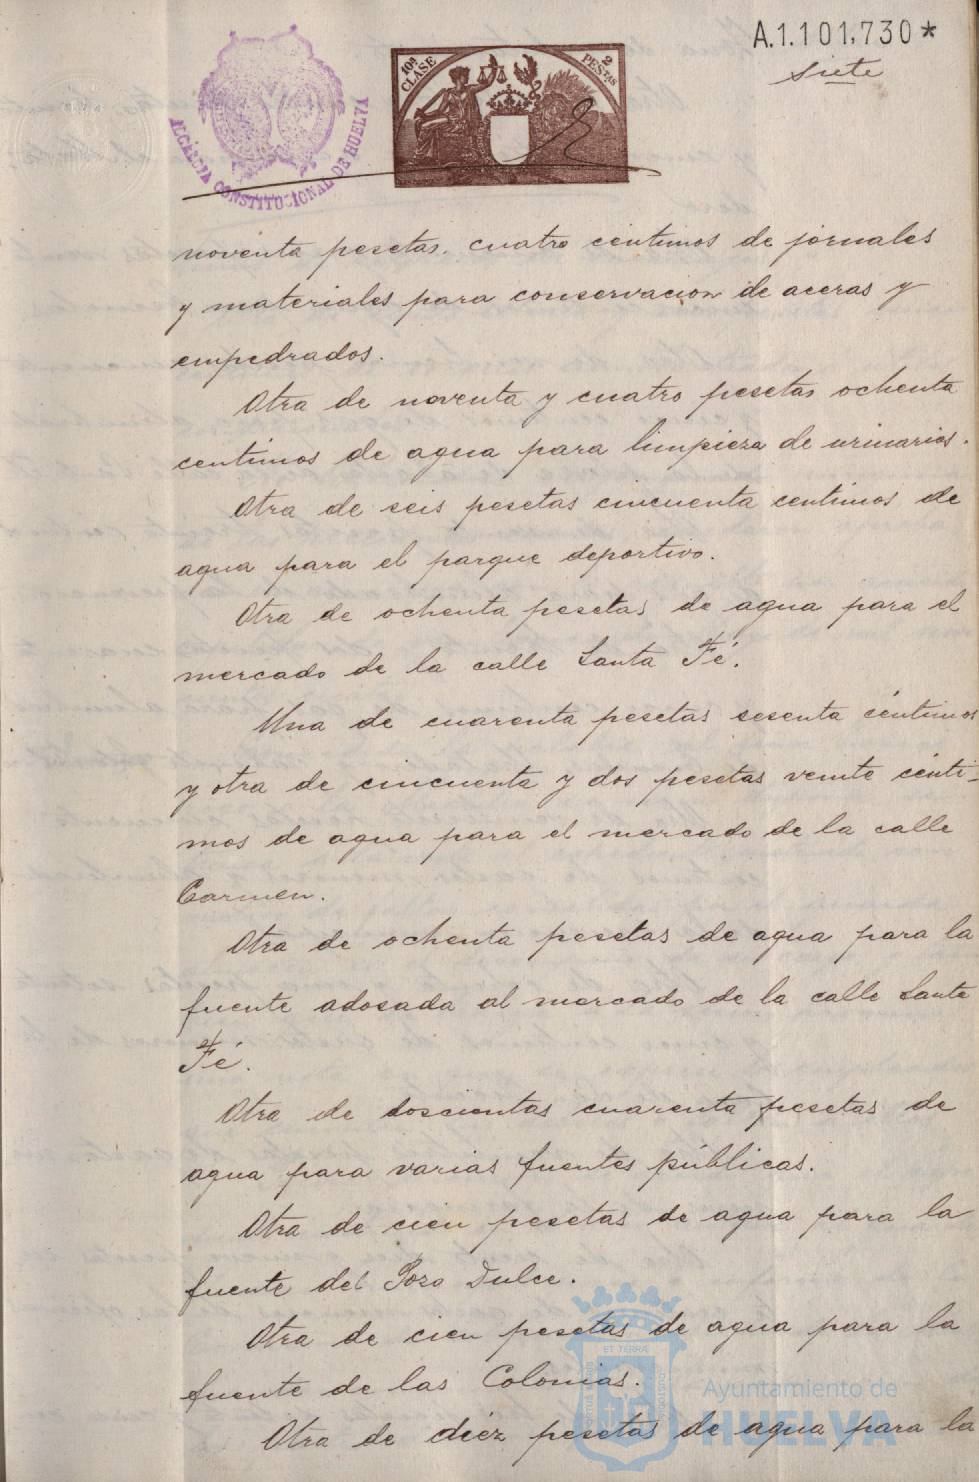 A.1.101,730*
siete
10ª CLASE
2 PESTAS
ALCALDIA CONSTITUCIONAL DE HUELVA
noventa pesetas, cuatro centimos de jornales
y materiales para conservacion de aceras y
empedrados.
Otra de noventa y cuatro pesetas ochenta
centimos de agua para limpieza de urinarios.
Otra de seis pesetas cincuenta centimos de
agua para el parque deportivo.
Otra de ochenta pesetas de agua para el
mercado de la calle Santa Fé.
Una de cuarenta pesetas sesenta céntimos
y otra de cincuenta y dos pesetas veinte cénti-
mos de agua para el mercado de la calle
Carmen.
Otra de ochenta pesetas de agua para la
fuente adosada al mercado de la calle Santa
Fé.
Otra de doscientas cuarenta pesetas de
agua para varias fuentes públicas.
Otra de cien pesetas de agua para la
fuente del Pozo Dulce.
Otra de cien pesetas de agua para la
fuente de las Colonias.
Otra de diéz pesetas de agua para la
ET TERRÆ
Ayuntamiento de
HUELVA